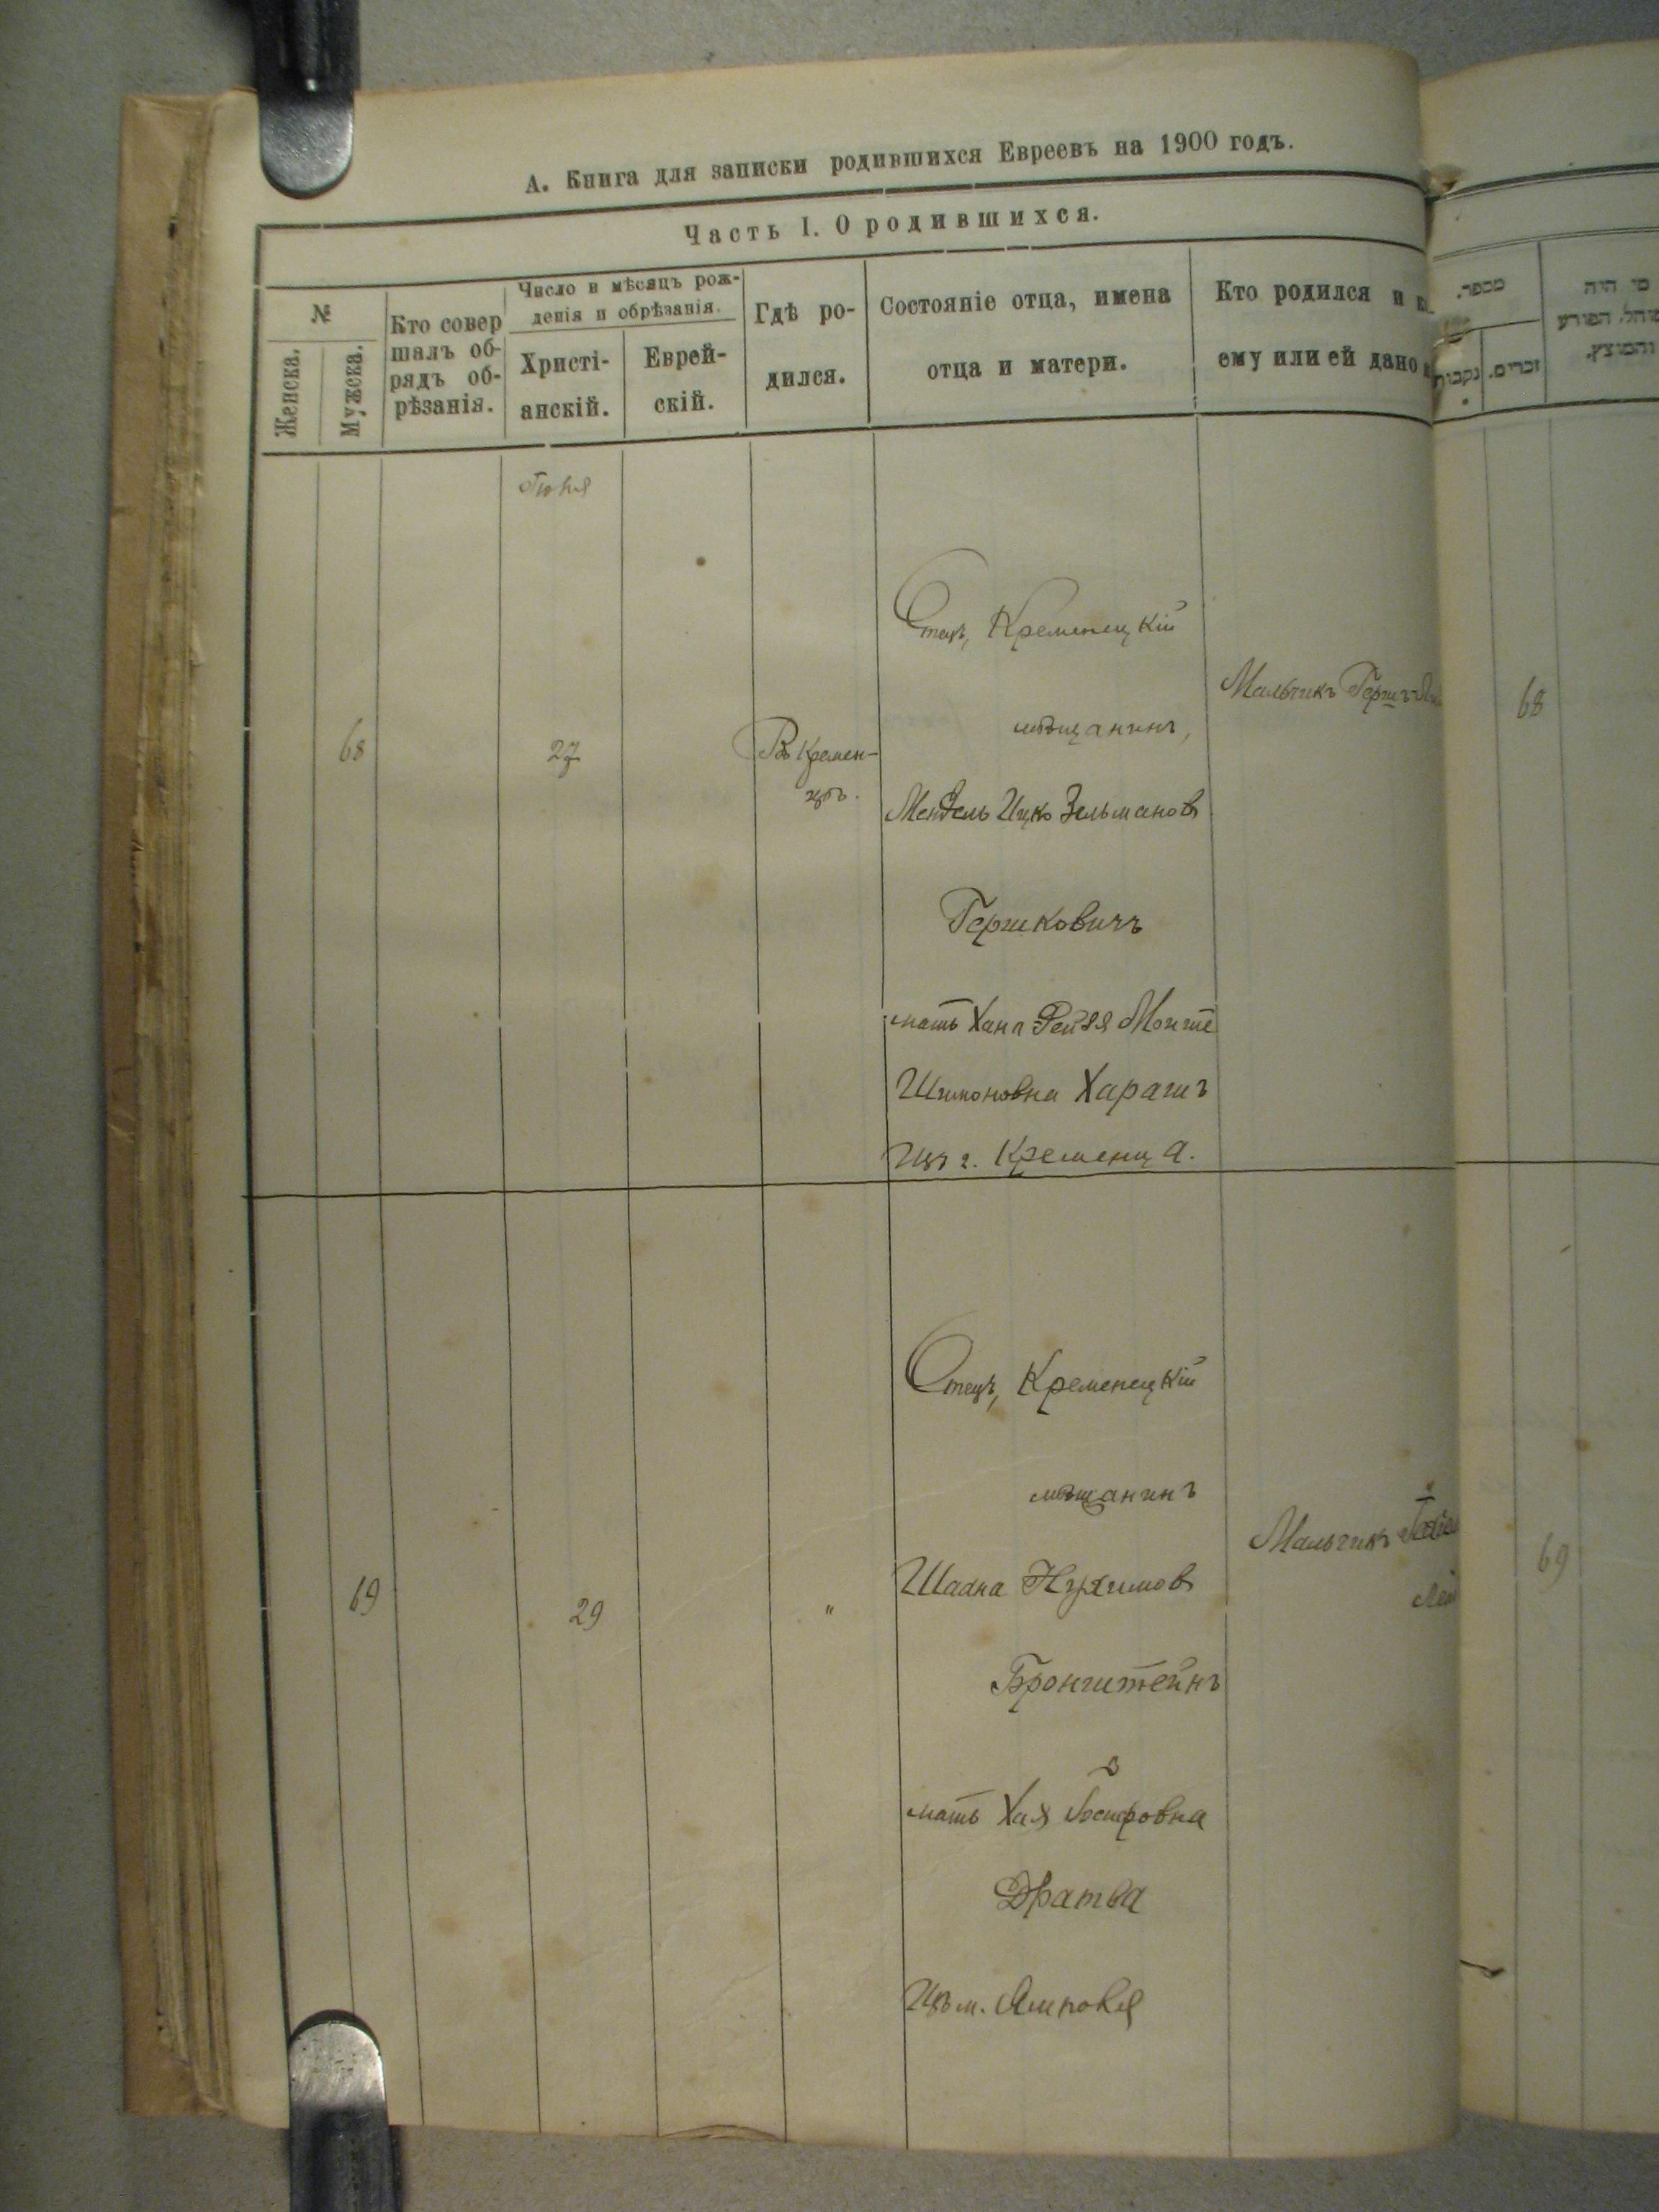 А. Книга для записки родившихся Евреевъ на 1900 годъ.
Часть I. О родившихся.
№
Женска.
Мужска.
Кто совер
шалъ об-
рядъ об-
рѣзанія.
Число и мѣсяцъ рож-
денія и обрѣзанія.
Христі-
анскій.
Еврей-
скій.
Гдѣ ро-
дился.
Состояніе отца, имена
отца и матери.
Кто родился и
ему или ей дано
מספר.
נקבות
זכרים.
מי היה
המוהל, הפורע
והמוצץ.
68
27
Въ Кремен-
цѣ.
Отецъ, Кременецкій
мѣщанинъ,
Мендель Ицко Зельманов
Гершковичъ
мать Хана Рейзя
Шимоновна Харашъ
Изъ г. Кременца.
Мальчикъ Гершъ
68
69
29
"
Отецъ, Кременецкій
мѣщанинъ
Шахна Нухимов
Бронштейнъ
мать Хая
Дратва
Изъ м. Ямполя
Мальчикъ
69